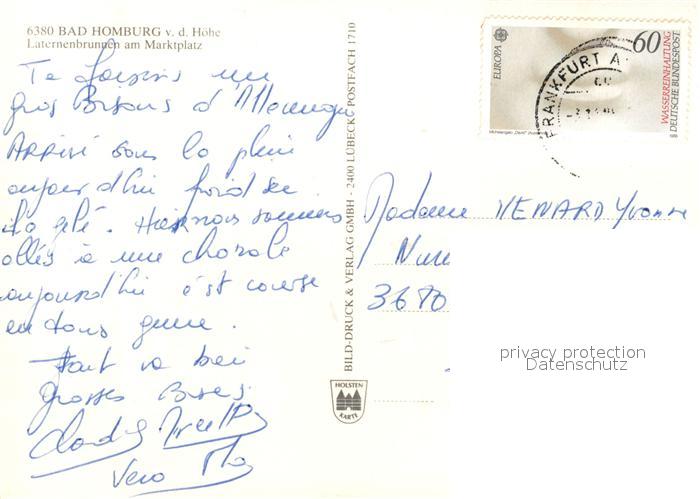 6380 BAD HOMBURG v. d. Höhe
Laternenbrunnen am Marktplatz
Te faisons un
gros Bisous d'Allemagne
Arrivé sous la pluie
aujourd'hui froid sec
la gelé. Hier nous sommes
allés à une chorale
aujourd'hui c'est course
en tous genre.
Tout va bien
Grosses Bises.
Vero
BILD-DRUCK & VERLAG GMBH - 2400 LÜBECK - POSTFACH 1710
HOLSTEN
KARTE
EUROPA
60
WASSERREINHALTUNG
DEUTSCHE BUNDESPOST
FRANKFURT A
Madame VENARD Yvonne
3670
privacy protection
Datenschutz